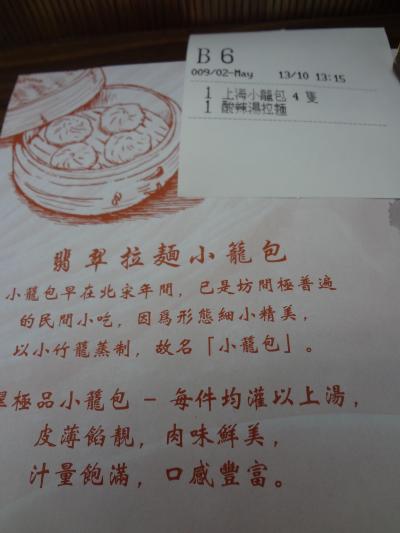 B 6
009/02-May 13/10 13:15
1 上海小籠包 4 隻
1 酸辣湯拉麵
翡翠拉麵小籠包
小籠包早在北宋年間，已是坊間極普遍
的民間小吃，因爲形態細小精美，
以小竹籠蒸制，故名「小籠包」。
極品小籠包 － 每件均灌以上湯，
皮薄餡靚，肉味鮮美，
汁量飽滿，口感豐富。